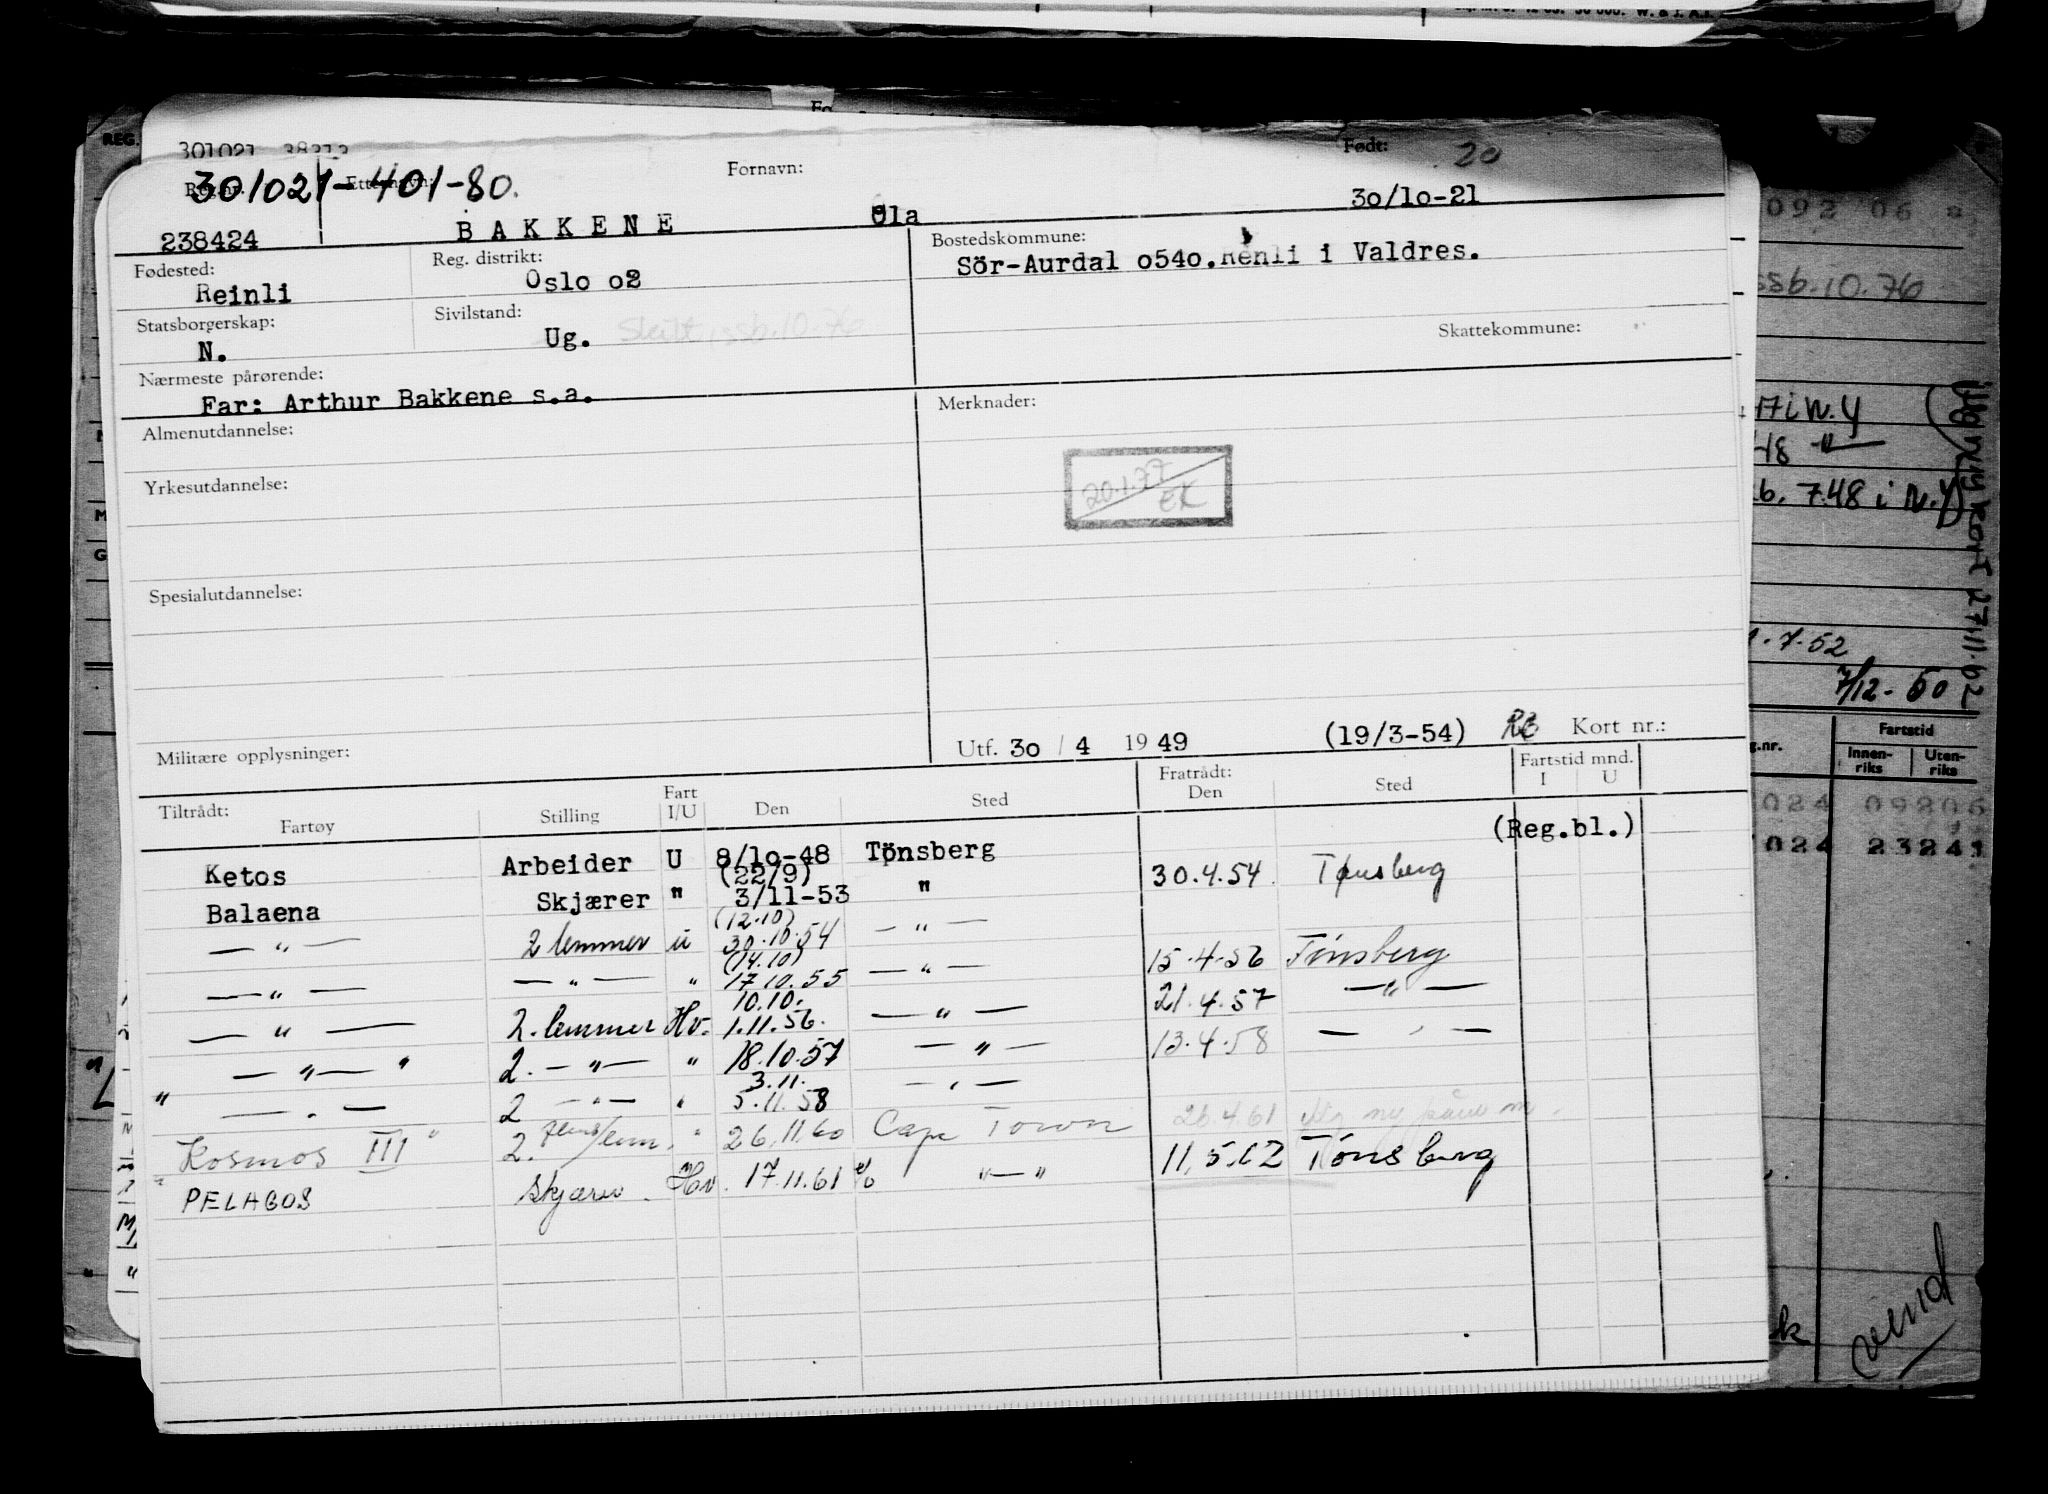 301021 38313
Reg.nr. Etternavn: Fornavn: Født: 20
301021-401-80.
238424 BAKKENE Ola 30/10-21
Fødested: Reinli
Reg. distrikt: Oslo 02
Bostedskommune: Sör-Aurdal 0540. Renli i Valdres.
Statsborgerskap: N.
Sivilstand: Ug. Skilt, ssb.10-76
Skattekommune:
Nærmeste pårørende:
Far: Arthur Bakkene s.a.
Almenutdannelse:
Merknader:
20.1.77
EK
Yrkesutdannelse:
Spesialutdannelse:
Militære opplysninger:
Utf. 30 / 4 1949 (19/3-54) Kort nr.:
Tiltrådt: Fratrådt: Fartstid mnd.
Fartøy Stilling Fart I/U Den Sted Den Sted I U
(Reg.bl.)
Ketos Arbeider U 8/10-48 Tönsberg
(22/9)
Balaena Skjærer " 3/11-53 " 30.4.54 Tønsberg
(12.10)
— " — 2 lemmer u 30.10.54 — " —
(14.10)
— " — — " — " 17.10.55 — " — 15.4.56 Tönsberg
10.10.
— " — 2. lemmer Hv. 1.11.56. — " — 21.4.57 — " —
— " — " 2. — " — " 18.10.57 — " — 13.4.58 — " —
3.11.
" — " — 2 — " — " 5.11.58 — " —
Kosmos III " 2. flens/lem. " 26.11.60 Cape Town 26.4.61
PELAGOS Skjærer. Hv. 17.11.61 " — " 11.5.62 Tönsberg
092 06
ssb.10.76
17 i N.Y
48 — " —
7.48 i N.Y
Utg nytt kort 27.11.62
7.52
7/12-50
Fartstid
Innenriks Utenriks
024 09206
024 23241
vend